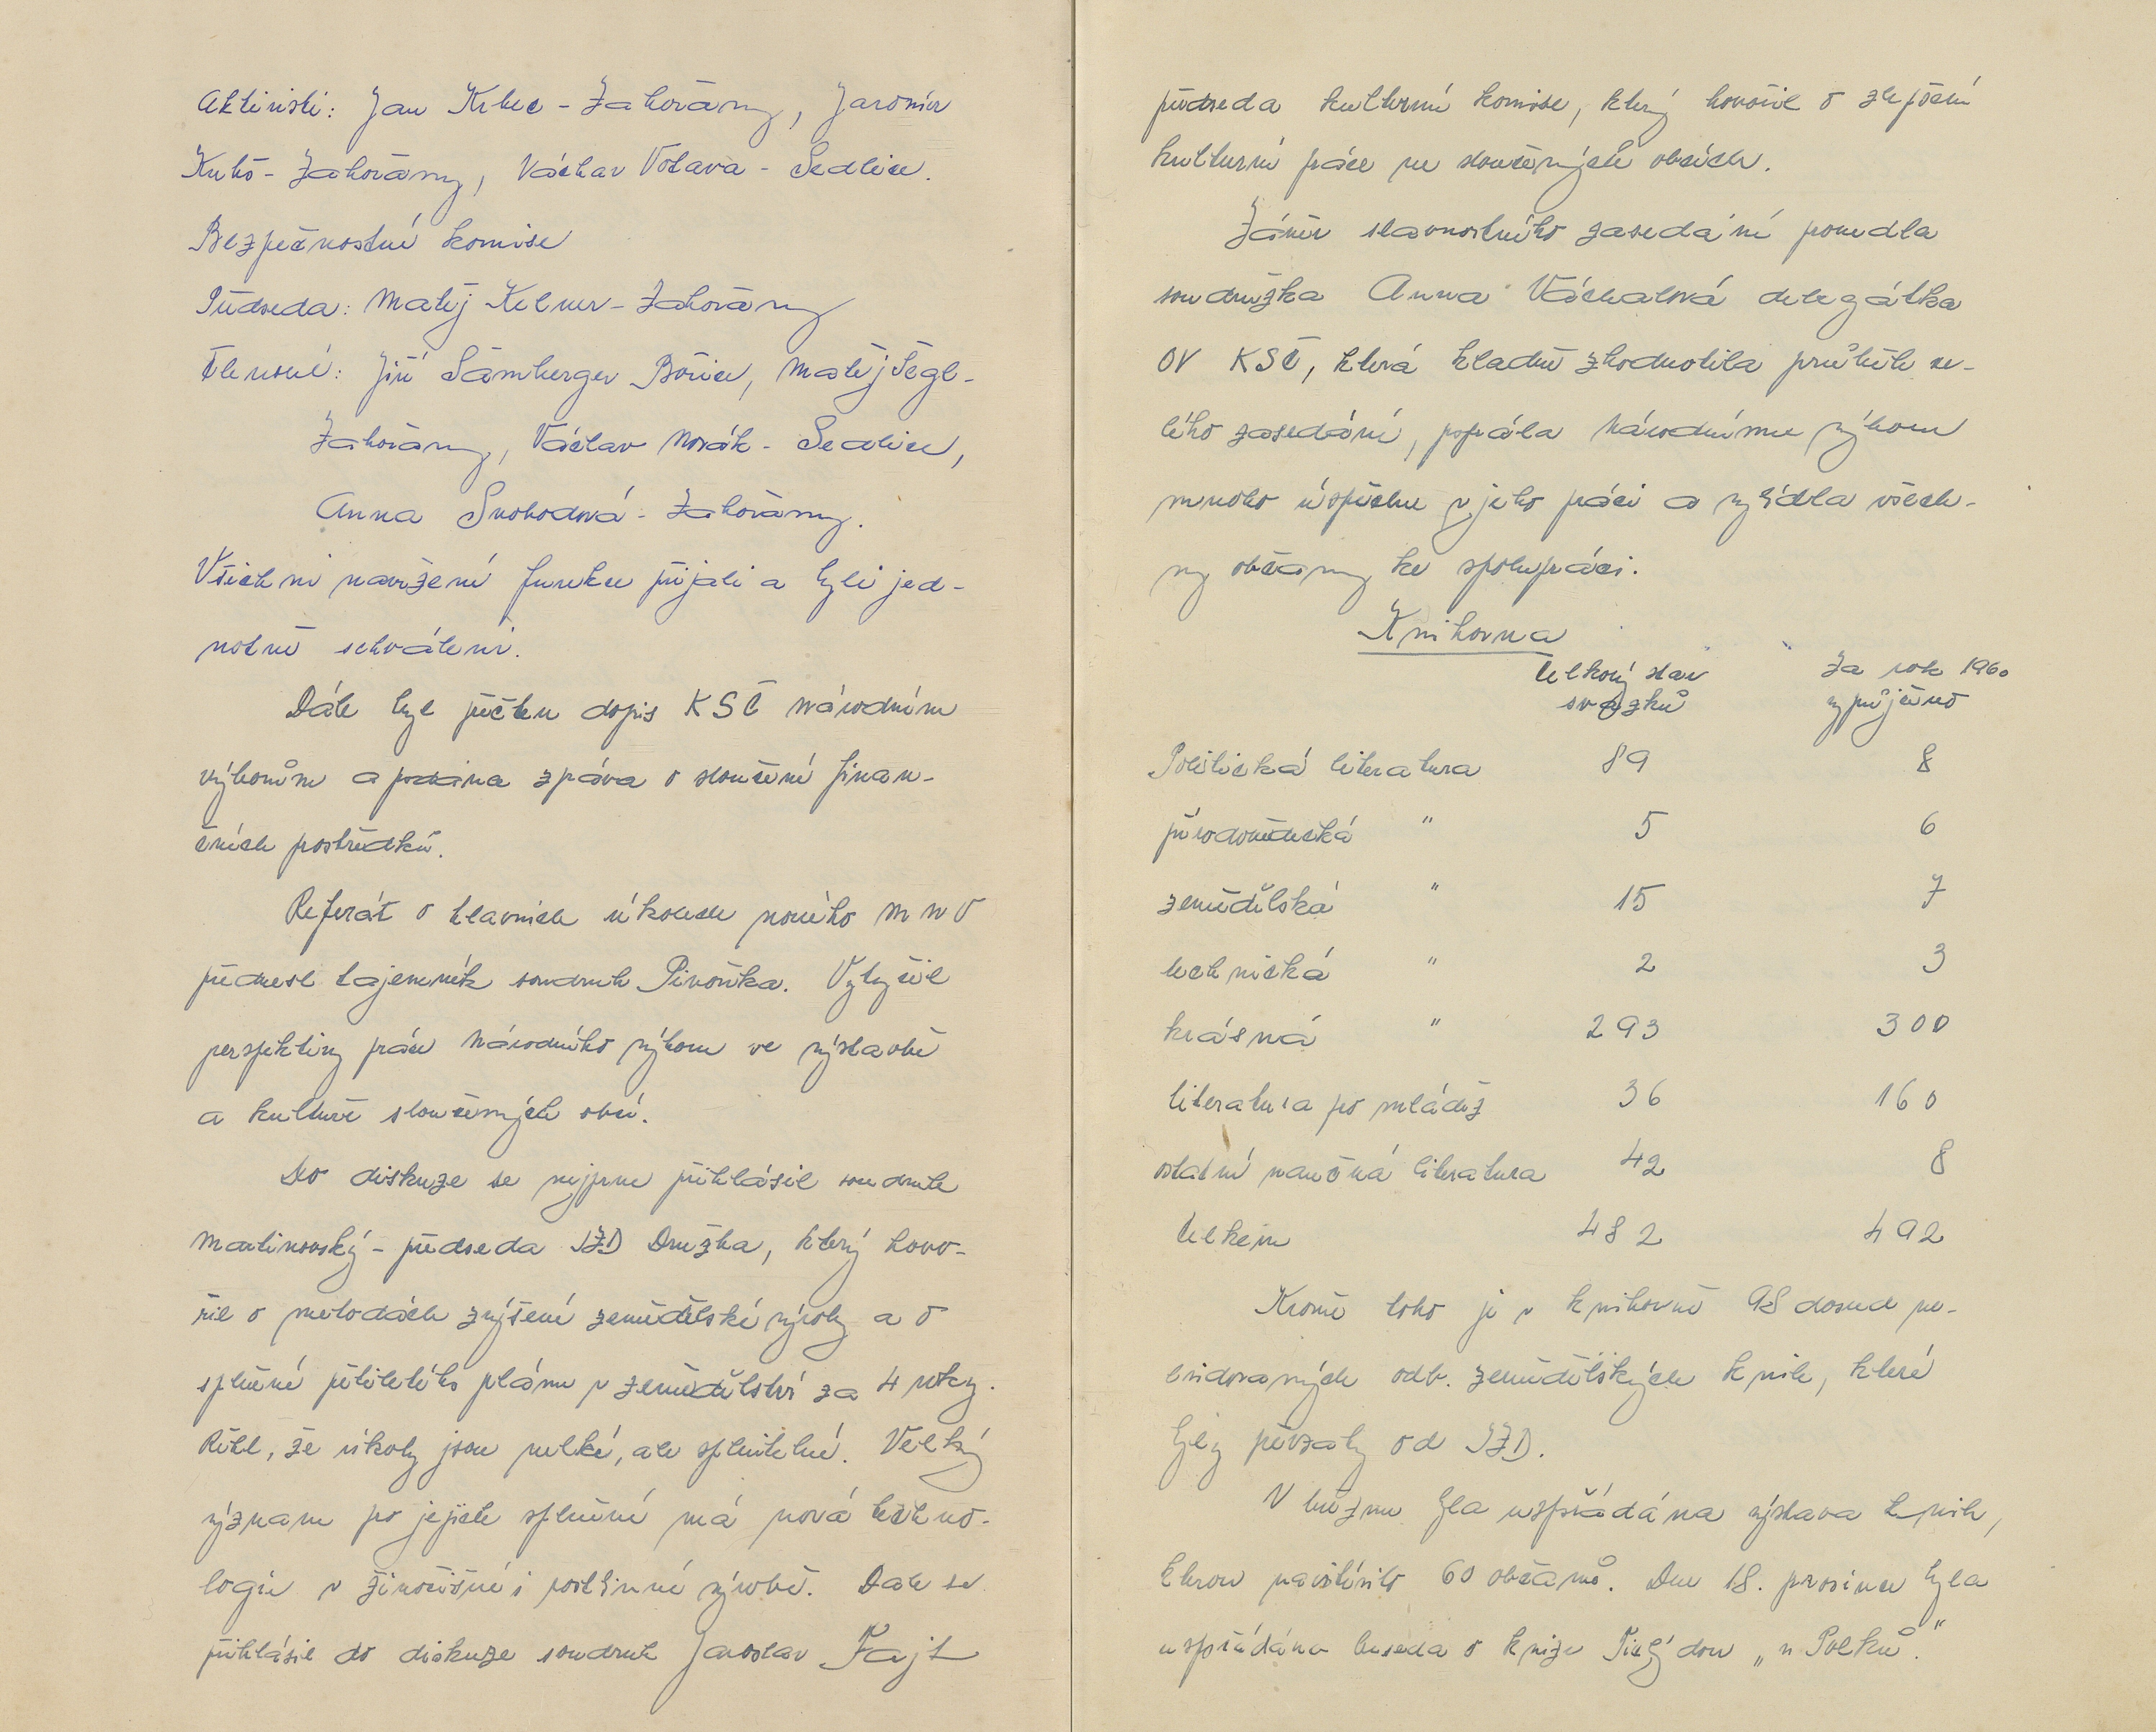 Aktivisti: Jan Krbec - Zahořany, Jaromír
Kubš - Zahořany, Václav Votava - Sedlice.
Bezpečnostní komise
Předseda: Matěj Kelner - Zahořany
Členové: Jiří Šamberger Bořice, Matěj Šegl-
Zahořany, Václav Novák - Sedlice,
Anna Svobodová - Zahořany.
Všichni navržení funkce přijali a byli jed-
notně schváleni.
Dále byl přečten dopis KSČ národním
výborům a podána zpráva o sloučení finan-
čních prostředků.
Referát o hlavních úkolech nového MNV
přednesl tajemník soudruh Pivoňka. Vytyčil
perspektivy práce Národního výboru ve výstavbě
a kultuře sloučených obcí.
Do diskuze se nejprve přihlásil soudruh
Martinovský - předseda JZD Družba, který hovo-
řil o metodách zvýšení zemědělské výroby a o
splnění pětiletého plánu v zemědělství za 4 roky.
Řekl, že úkoly jsou velké, ale splnitelné. Velký
význam po jejich splnění má nová techno-
logie v živočišné i rostlinné výrobě. Dále se
přihlásil do diskuze soudruh Jaroslav Fajt
předseda kulturní komise, který hovořil o zlepšení
kulturní práce ve sloučených obcích.
Závěr slavnostního zasedání provedla
soudružka Anna Váchalová delegátka
OV KSČ, která kladně zhodnotila průběh ce-
lého zasedání, popřála Národnímu výboru
mnoho úspěchu v jeho práci a vyzvala všech-
ny občany ke spolupráci.
Knihovna
Celkový stav Za rok 1960
svazků vypůjčeno
Politická literatura 89 8
přírodovědecká " 5 6
zemědělská " 15 7
technická " 2 3
krásná " 293 300
literatura pro mládež 36 160
ostatní naučná literatura 42 8
Celkem 482 492
Kromě toho je v knihovně 98 dosud ne-
evidovaných odb. zemědělských knih, které
byly převzaty od JZD.
V březnu byla uspořádána výstava knih,
kterou navštívilo 60 občanů. Dne 18. prosince byla
uspořádána beseda o knize Tichý don „u Polků".